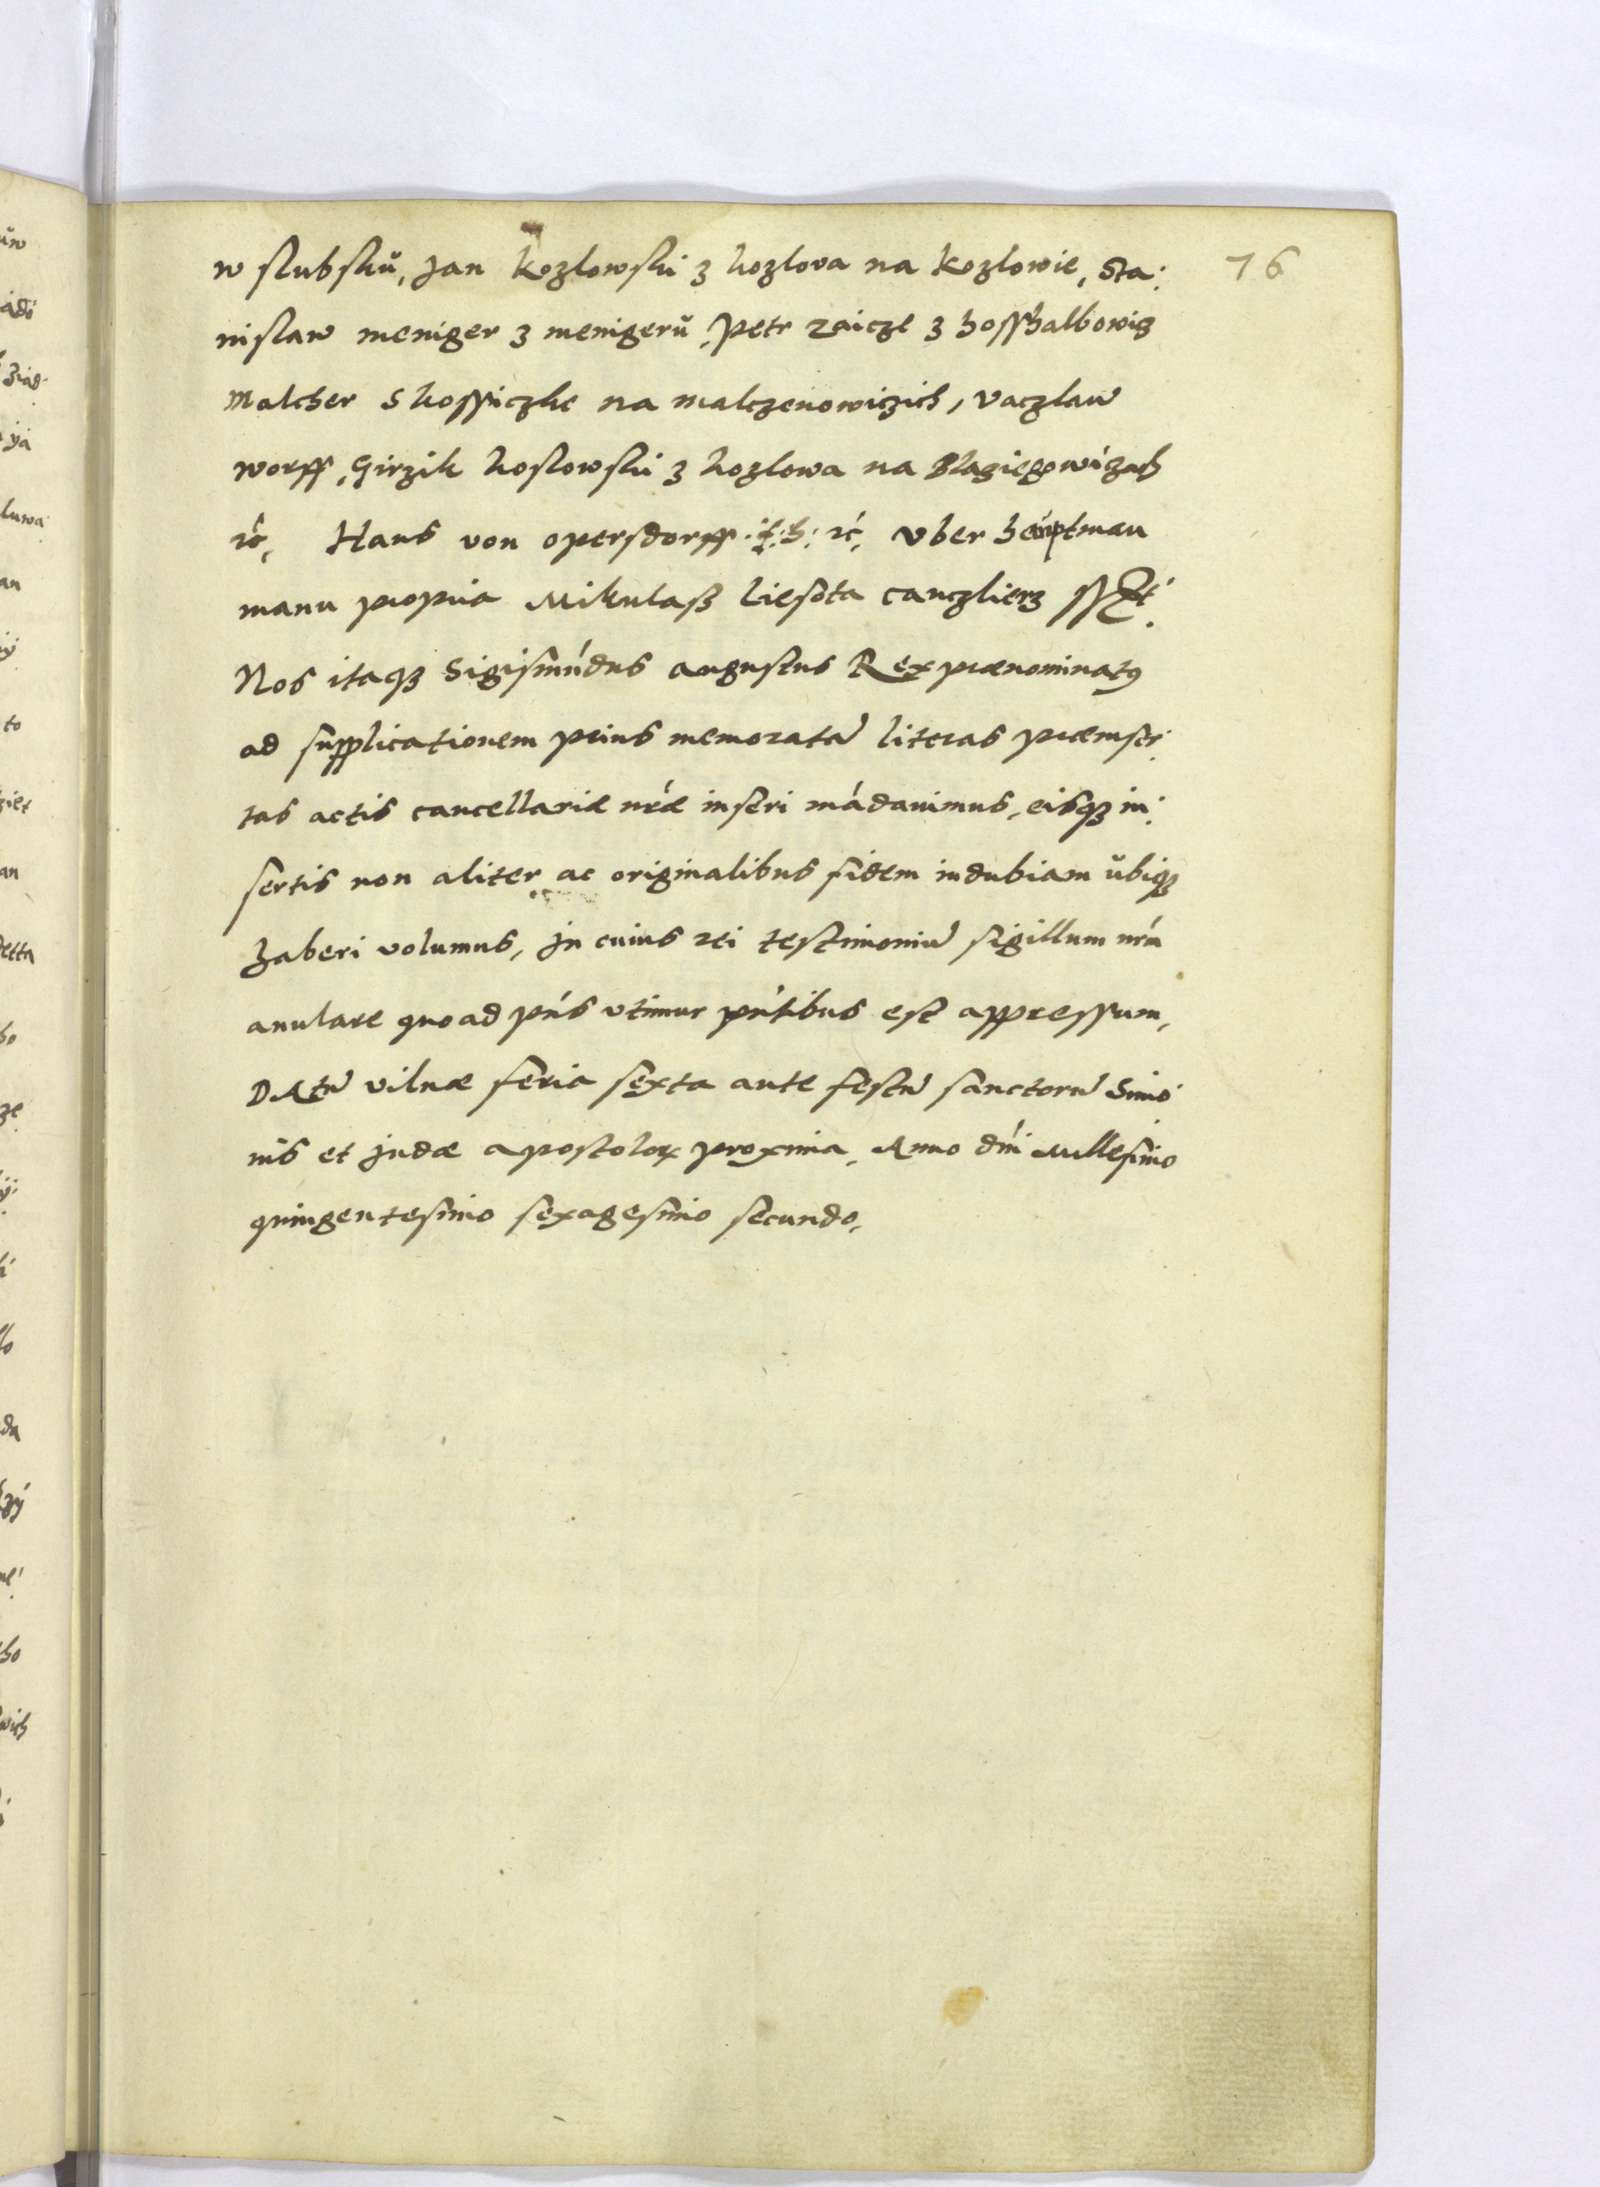 w slubskŭ, Jan Kozlowski z kozlova na Kozlowie, Sta:
nislaw meniger z menigerŭ, Petr zaicze z hosshalbowicz
Malcher Skossiczke na malczenowiczich, Vaczlaw
worff, Girzik koslowski z kozlowa na Blasiegowiczach
ꝛc̃, Hans von opersdorff .f: h: ꝛc̃, Vber heuptman
manu propria Mikulass Liesota canczlierz sszt.
Nos itaqꝫ Sigismūdus augustus Rex prænominatꝰ
ad supplicationem prius memoratā literas præinser:
tas actis cancellariæ nr̄æ inseri mādauimus, eisqꝫ in:
sertis non aliter ac originalibus fidem indubiam ŭbiqꝫ
haberi volumus, Jn cuius rei testimoniū sigillum nr̄m
anulare quo ad pn̄s vtimur pn̄tibus est appressum,
DAtū vilnæ feria sexta ante festū sanctorū Simo
nis et Judæ apostoloꝝ proxima, Anno dn̄i Millesimo
quingentesimo sexagesimo secundo,
76